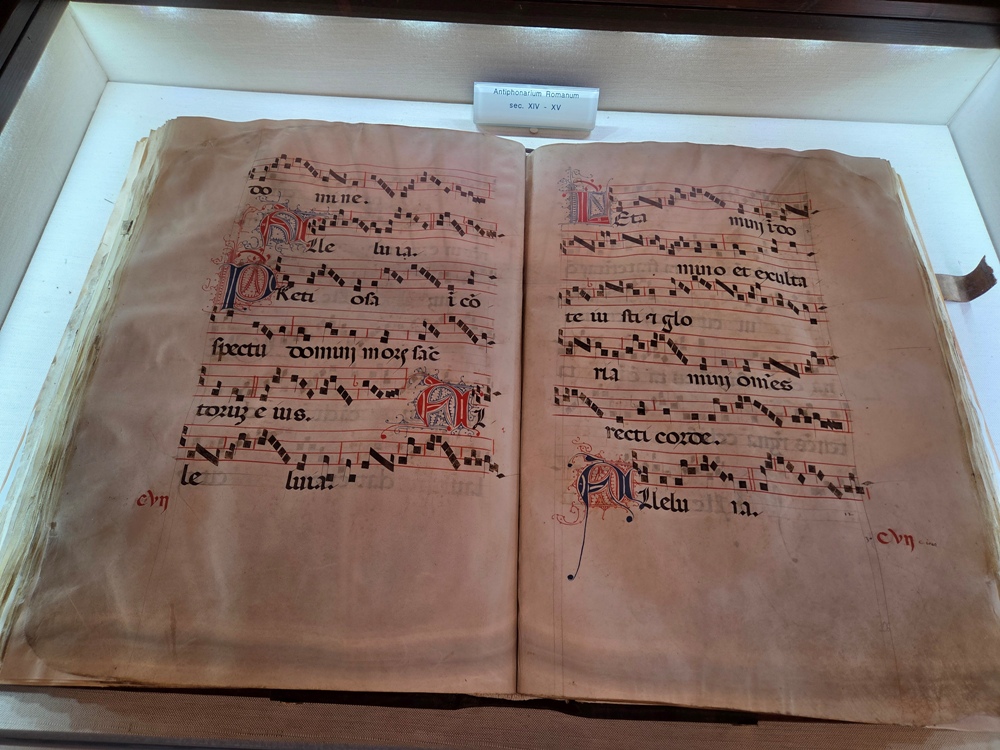 Antiphonarium Romanum
sec. XIV - XV
do mine.
Alle luia.
Preti osa i cō
spectu domini mors sāc
toruz e ius. Al
le luia.
cvij
Leta mini i do
mino et exulta
te iu sti ⁊ glo
ria mini om̄es
recti corde.
Allelu ia.
cvij